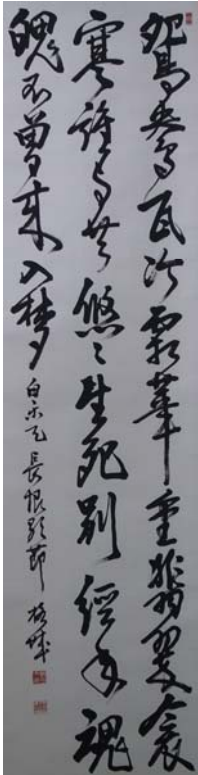 鴛鴦瓦冷霜華重翡翠衾
寒誰与共悠々生死別經年魂
魄不曾来入夢
白乐天長恨歌節